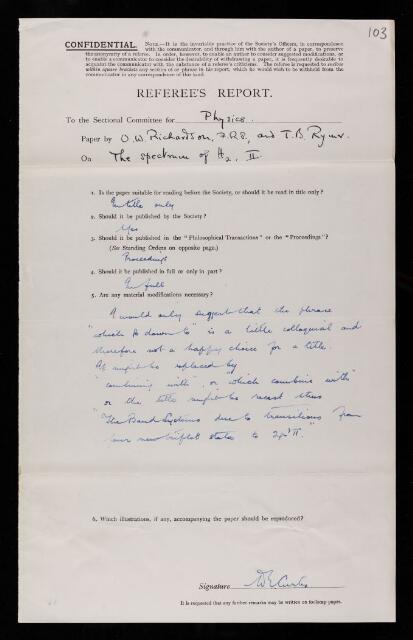 103
CONFIDENTIAL. NOTE.—It is the invariable practice of the Society's Officers, in correspondence
with the communicator, and through him with the author of a paper, to preserve
the anonymity of a referee. In order, however, to enable an author to consider suggested modifications, or
to enable a communicator to consider the desirability of withdrawing a paper, it is frequently desirable to
acquaint the communicator with the substance of a referee's criticisms. The referee is requested to enclose
within square brackets any section or phrase in his report, which he would wish to be withheld from the
communicator in any correspondence of this kind.
REFEREE'S REPORT.
To the Sectional Committee for Physics.
Paper by O. W. Richardson, F.R.S., and T. B. Rymer.
On The spectrum of H2, II.
1. Is the paper suitable for reading before the Society, or should it be read in title only?
In title only
2. Should it be published by the Society?
Yes
3. Should it be published in the "Philosophical Transactions" or the "Proceedings"?
(See Standing Orders on opposite page.)
Proceedings
4. Should it be published in full or only in part?
In full
5. Are any material modifications necessary?
I would only suggest that the phrase
"which go down to" is a little colloquial and
therefore not a happy choice for a title.
It might be replaced by
"combining with", or "which combine with"
or the title might be recast thus
"The Band Systems due to transitions from
four new triplet states to 2p³Π"
6. Which illustrations, if any, accompanying the paper should be reproduced?
Signature W E Curtis
It is requested that any further remarks may be written on foolscap paper.